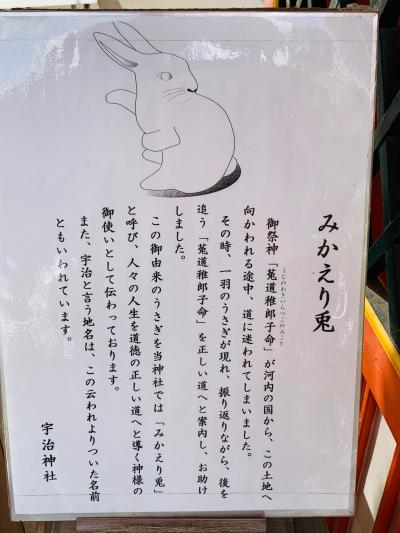 みかえり兎
御祭神「菟道稚郎子命」が河内の国から、この土地へ
うじのわきいらつこのみこと
向かわれる途中、道に迷われてしまいました。
その時、一羽のうさぎが現れ、振り返りながら、後を
追う「菟道稚郎子命」を正しい道へと案内し、お助け
しました。
この御由来のうさぎを当神社では「みかえり兎」
と呼び、人々の人生を道徳の正しい道へと導く神様の
御使いとして伝わっております。
また、宇治と言う地名は、この云われよりついた名前
ともいわれています。
宇治神社